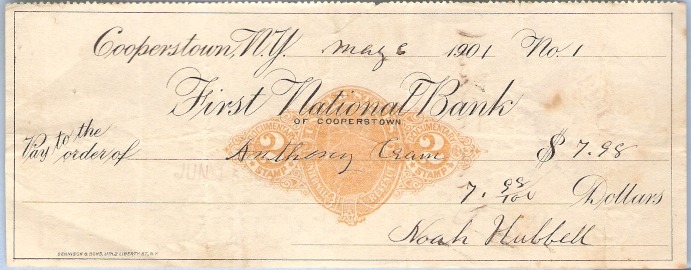 Cooperstown, N.Y. May 6 1901 No. 1
First National Bank
OF COOPERSTOWN
Pay to the order of Anthony Cram $ 7.98
DOCUMENTARY 2 STAMP DOCUMENTARY 2 STAMP
JUN
7. 98/100 Dollars
Noah Hubbell
DENNISON & SONS, LITH. 2 LIBERTY ST., N.Y.